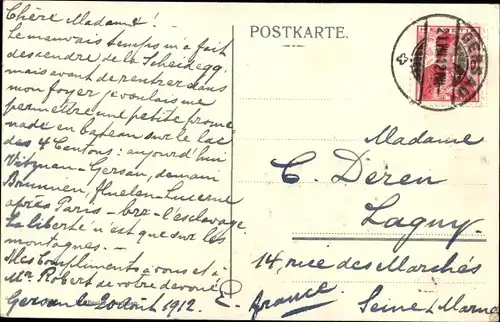 Chère Madame!
Le mauvais temps m'a fait
descendre de la Scheidegg.
mais avant de rentrer dans
mon foyer je voulais me
permettre une petite prome
nade en bateau sur le lac
des 4 Cantons: aujourd'hui
Vitznau-Gersau, demain
Brunnen, Fluelen-Lucerne
après Paris - brr- l'esclavage
La liberté n'est que sur les
montagnes.-
Mes Compliments à vous et à
Mr. Robert de votre dévoué
Gersau le 20 août 1912. E.
POSTKARTE.
GERSAU
Madame
C. Deren
Lagny.
14, rue des Marchés
france. Seine & Marne